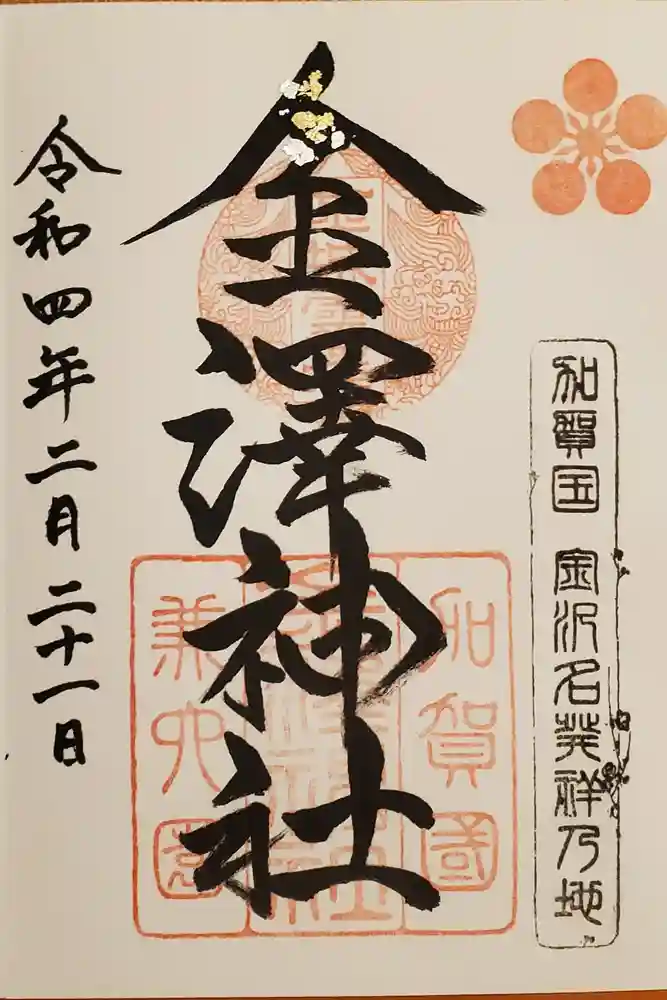 加賀国 金沢名発祥乃地
金澤神社
加賀國
金澤神社
兼六園
令和四年二月二十一日